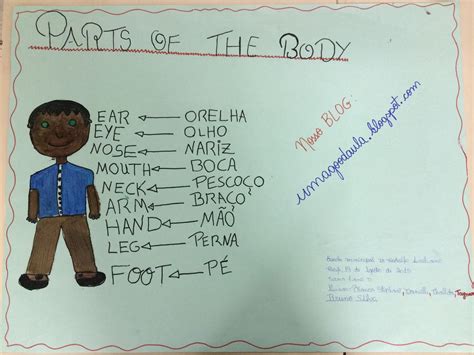 PARTS OF THE BODY
EAR ← ORELHA
EYE ← OLHO
NOSE ← NARIZ
MOUTH ← BOCA
NECK ← PESCOÇO
ARM ← BRAÇO
HAND ← MÃO
LEG ← PERNA
FOOT ← PÉ
Nosso BLOG:
umagoodaula.blogspot.com
Bruno Silva